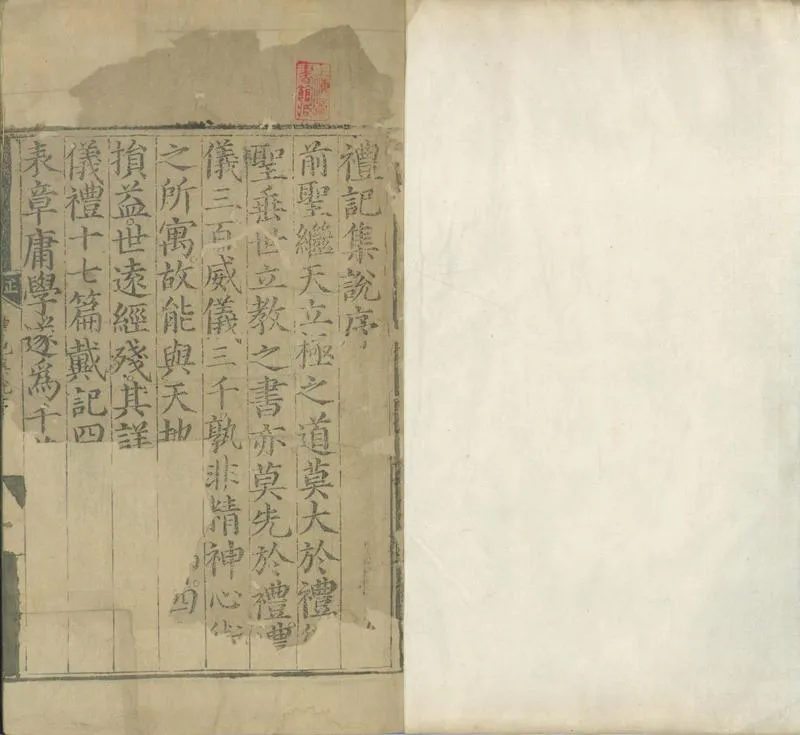 禮記集說序
前聖繼天立極之道莫大於禮
聖垂世立教之書亦莫先於禮禮
儀三百威儀三千孰非精神心
之所寓故能與天地
四
損益世遠經殘其詳
儀禮十七篇戴記四
表章庸學遂爲千